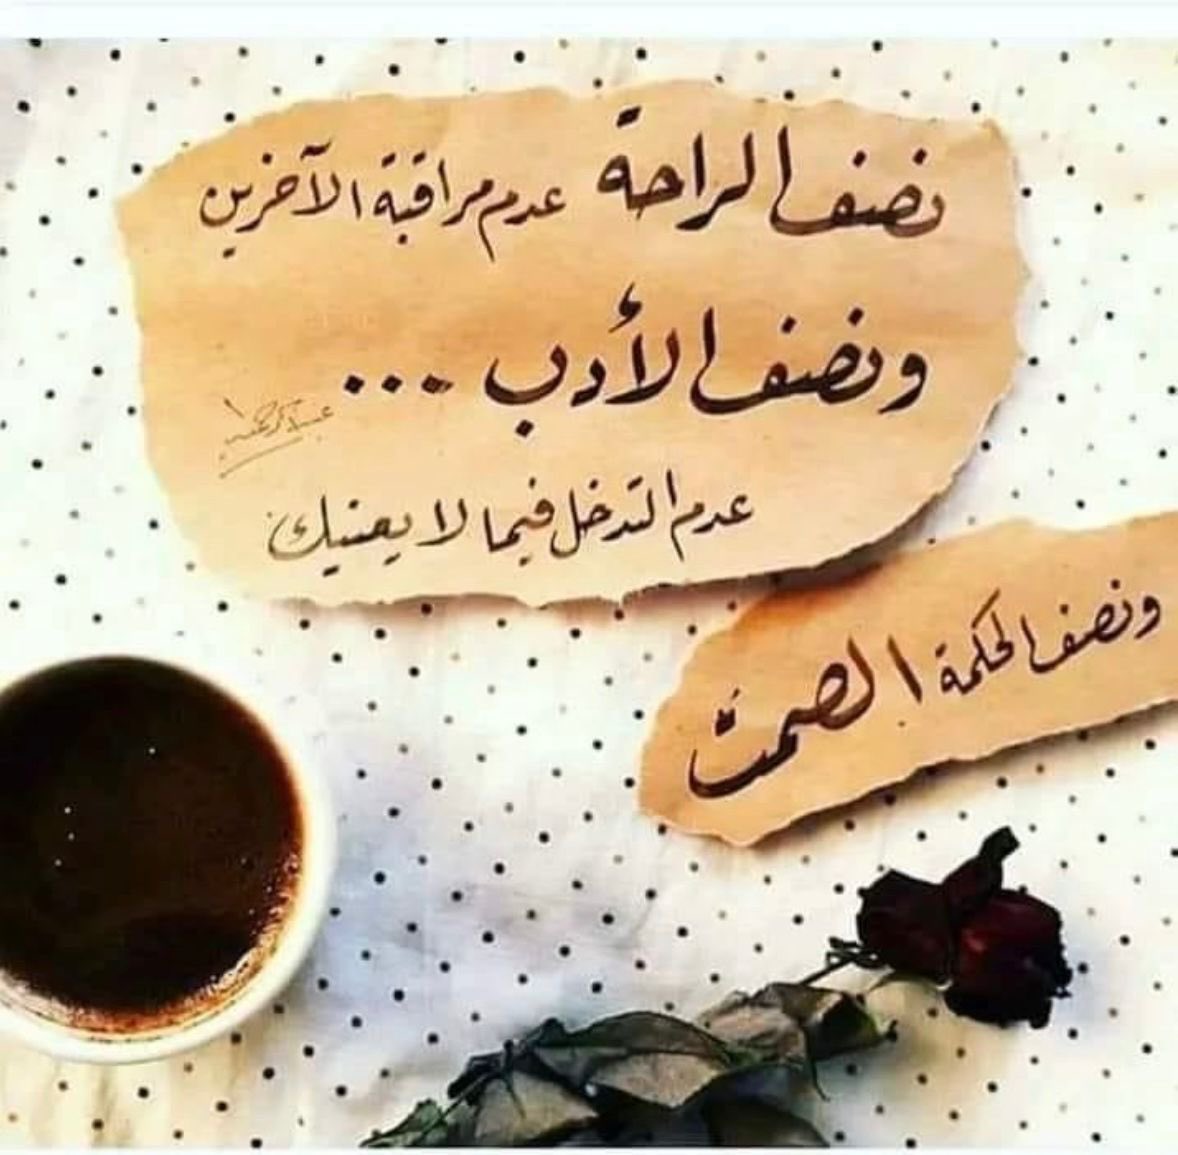 نصف الراحة عدم مراقبة الآخرين
ونصف الأدب ...
عدم التدخل فيما لا يعنيك
ونصف الحكمة الصمت